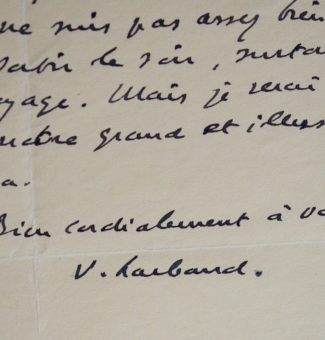 ne suis pas assez bien
sortir le soir, surtou
yage. Mais je serai
notre grand et illus
a.
Bien cordialement à vo
V. Larbaud.